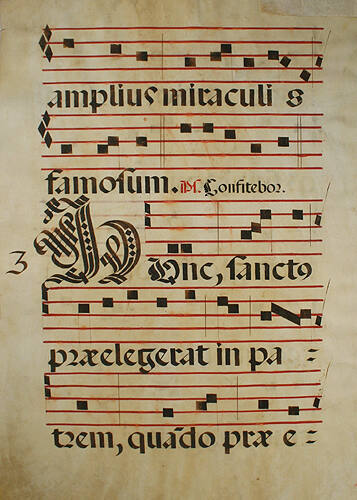 amplius miraculi s
famoſum. Ps. Confitebor.
3 HUnc, ſanctꝰ
præelegerat in pa =
trem, quãdo præ e =